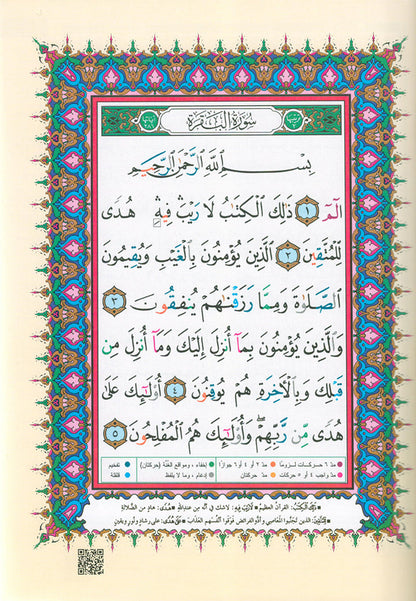 سُورَةُ الْبَقَرَةِ
بِسْمِ اللَّهِ الرَّحْمَٰنِ الرَّحِيمِ
الٓمٓ ١ ذَٰلِكَ الْكِتَٰبُ لَا رَيْبَ ۛ فِيهِ ۛ هُدًى
لِّلْمُتَّقِينَ ٢ الَّذِينَ يُؤْمِنُونَ بِالْغَيْبِ وَيُقِيمُونَ
الصَّلَوٰةَ وَمِمَّا رَزَقْنَٰهُمْ يُنفِقُونَ ٣
وَالَّذِينَ يُؤْمِنُونَ بِمَآ أُنزِلَ إِلَيْكَ وَمَآ أُنزِلَ مِن
قَبْلِكَ وَبِالْأَخِرَةِ هُمْ يُوقِنُونَ ٤ أُوْلَٰٓئِكَ عَلَىٰ
هُدًى مِّن رَّبِّهِمْ ۖ وَأُوْلَٰٓئِكَ هُمُ الْمُفْلِحُونَ ٥
مدّ ٦ حركات لزوماً مدّ ٢ أو ٤ أو ٦ جوازاً إخفاء ، ومواقع الغُنَّة (حركتان) تفخيم
مدّ واجب ٤ أو ٥ حركات مدّ حركتان إدغام ، وما لا يلفظ قلقلة
ذلك الكتب: القرآن العظيم لا ريب فيه: لاشك في أنه من عند الله هدى: هاد من الضلالة